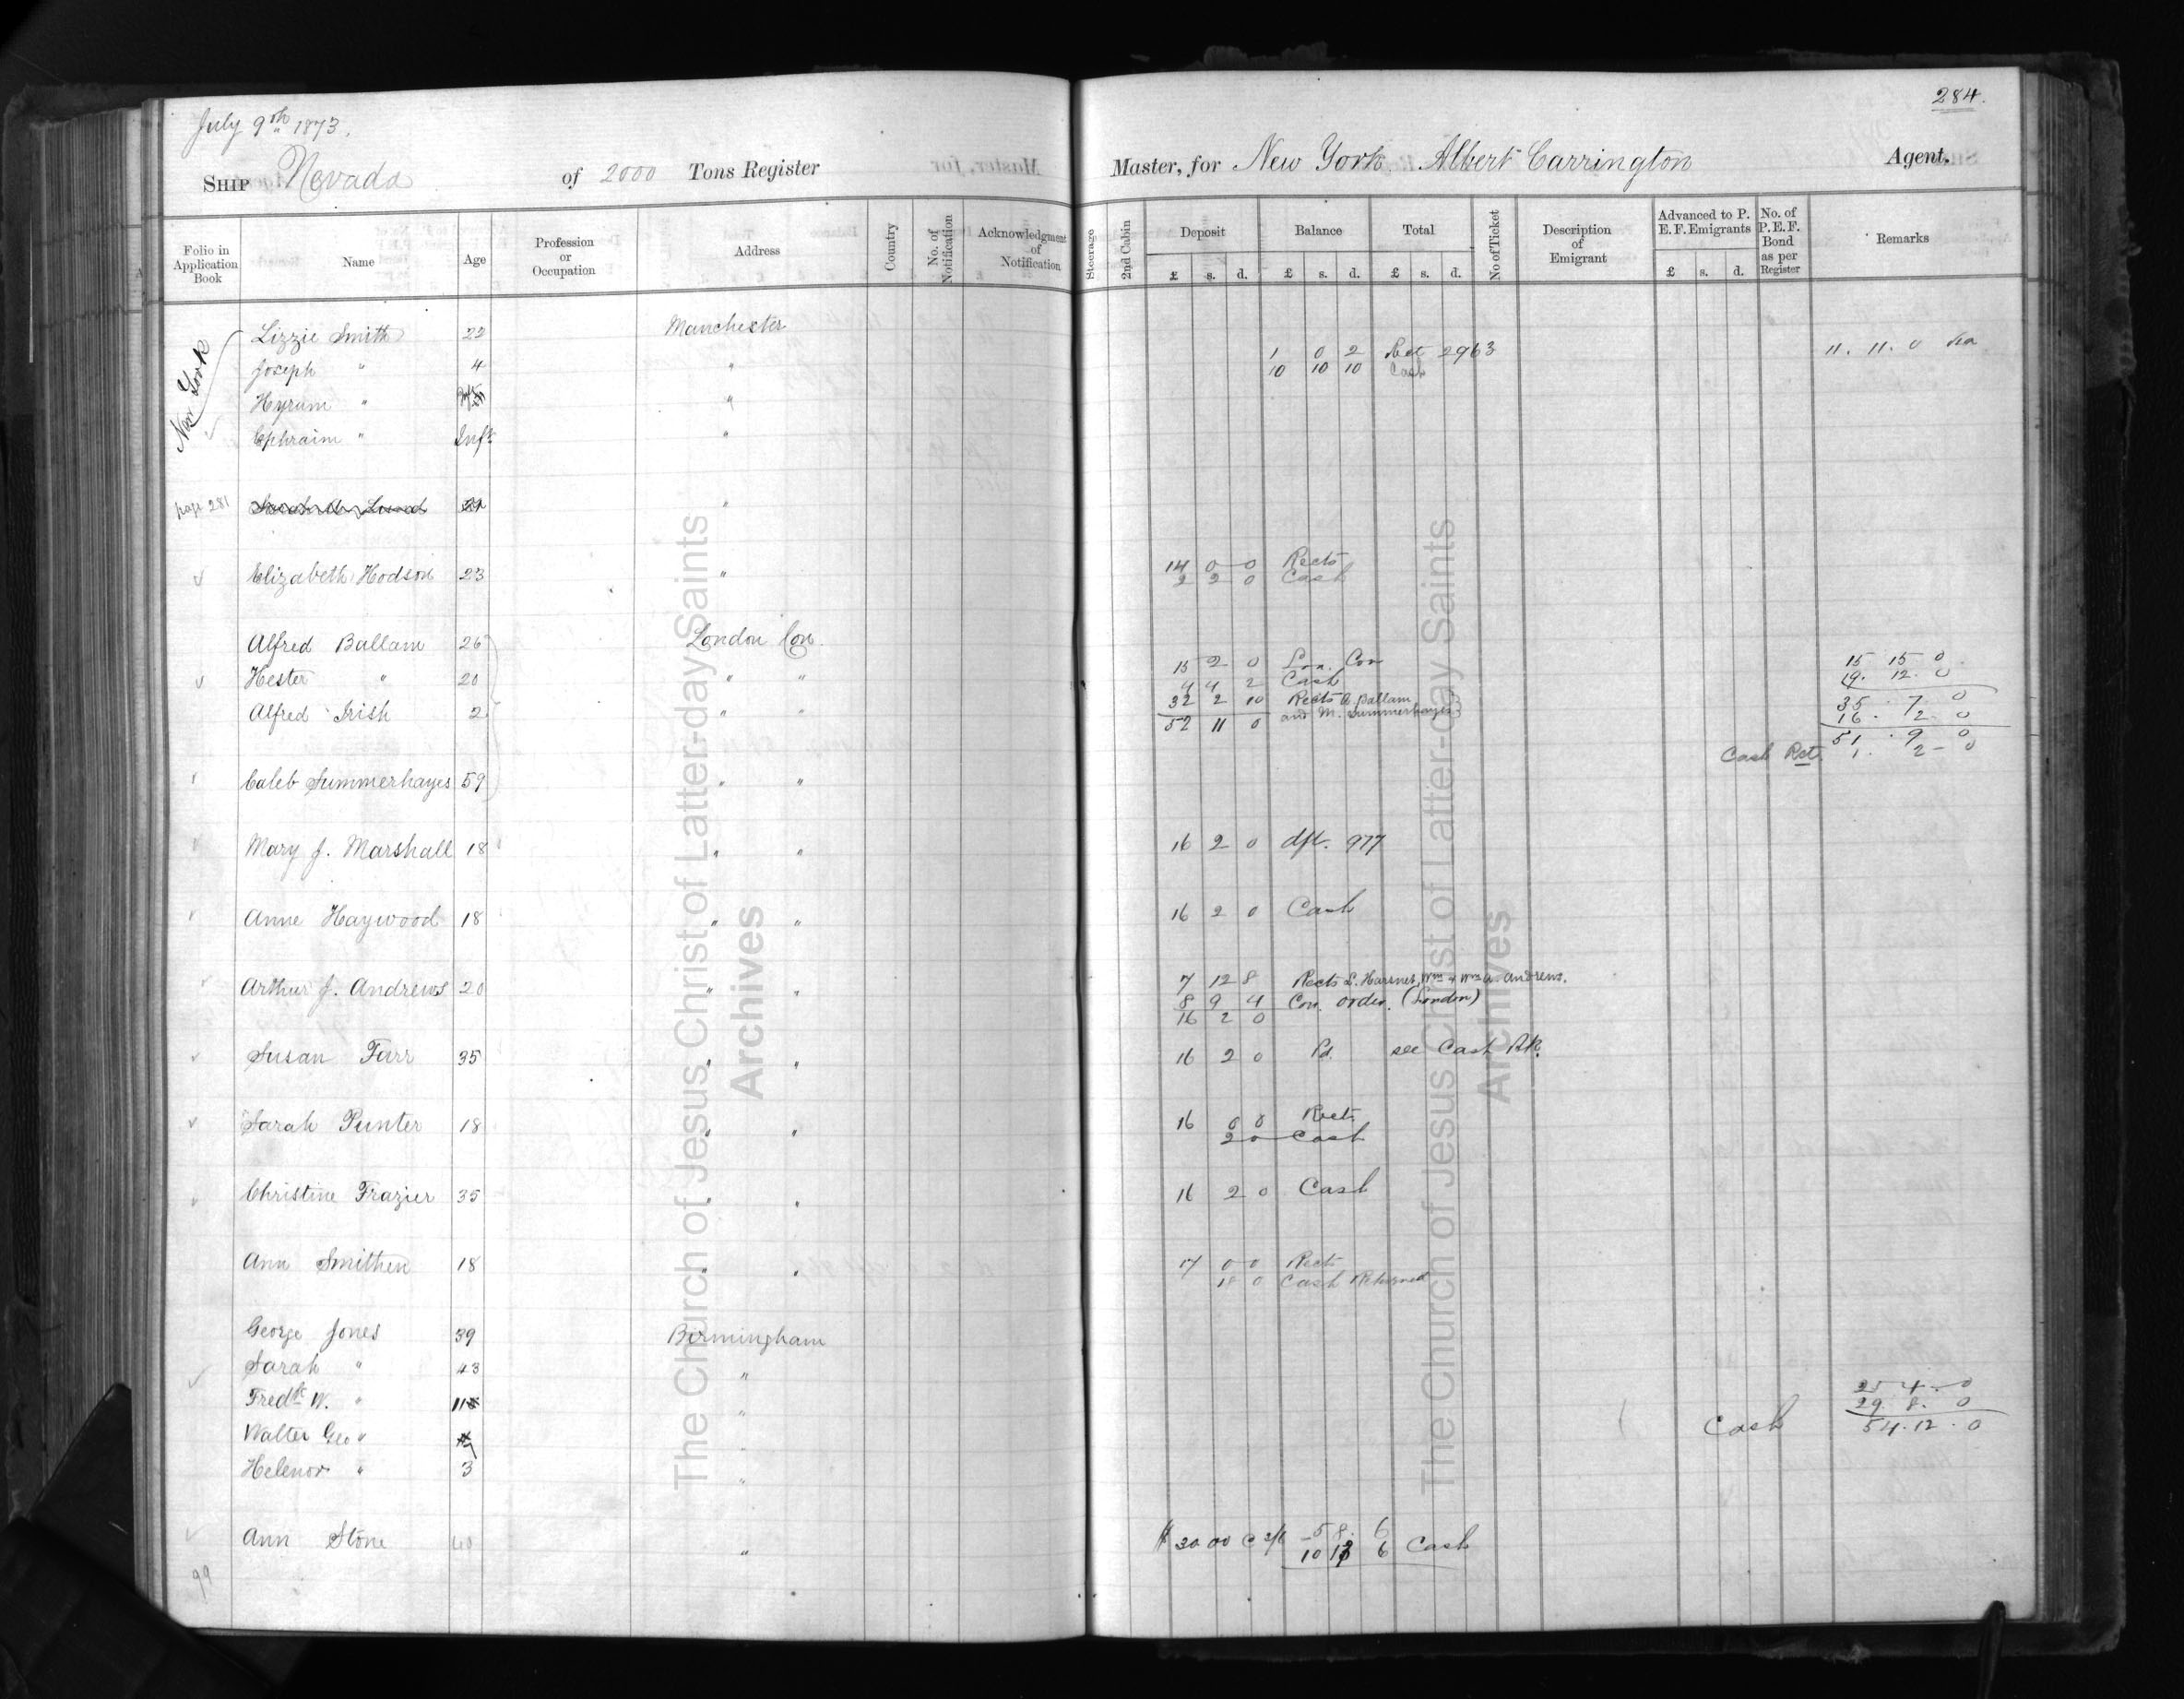 284.
July 9th 1873.
SHIP Nevada of 2000 Tons Register Master, for New York. Albert Carrington Agent.
Folio in Application Book
Name
Age
Profession or Occupation
Address
Country
No. of Notification
Acknowledgment of Notification
Steerage
2nd Cabin
Deposit £ s. d.
Balance £ s. d.
Total £ s. d.
No of Ticket
Description of Emigrant
Advanced to P. E. F. Emigrants £ s. d.
No. of P. E. F. Bond as per Register
Remarks
New York
Lizzie Smith 22 Manchester
1 0 2 Rct 2963 11. 11. 0
Joseph " 4 "
10 10 10 Cash
Hyrum " "
Ephraim " Inft "
page 281 "
Elizabeth Hodson 23 "
14 0 0 Rects
2 2 0 Cash
Alfred Ballam 26 London Con.
15 2 0 Lon. Con 15 15 0
Hester " 20 " "
4 4 2 Cash 19. 12. 0
Alfred Irish 2 " "
32 2 10 Rects A. Ballam 35. 7 0
and M. Summerhayes 16. 2 0
52 11 0 51. 9 0
Cash Rct 1. 2 0
Caleb Summerhayes 59 " "
Mary J. Marshall 18 " "
16 2 0 dft. 977
Anne Haywood 18 " "
16 2 0 Cash
Arthur J. Andrews 20 " "
7 12 8 Rects L. Harsnet, Wm & Wm A. Andrews.
8 9 4 Con. order. (London)
16 2 0
Susan Farr 35 " "
16 2 0 Pd. see Cash Bk.
Sarah Punter 18 " "
16 0 0 Rect.
2 0 Cash
Christine Frazier 35 " "
16 2 0 Cash
Ann Smithen 18 " "
17 0 0 Rects
18 0 Cash Returned
George Jones 39 Birmingham
Sarah " 43 "
Fredk W. " 11 " 25 4. 0
29 8. 0
Walter Geo " " Cash 54. 12. 0
Helenor " 3 "
Ann Stone 40 "
$ 20 00 @ 2/6 5 8. 6
10 13 6 Cash
99
The Church of Jesus Christ of Latter-day Saints
Archives
The Church of Jesus Christ of Latter-day Saints
Archives